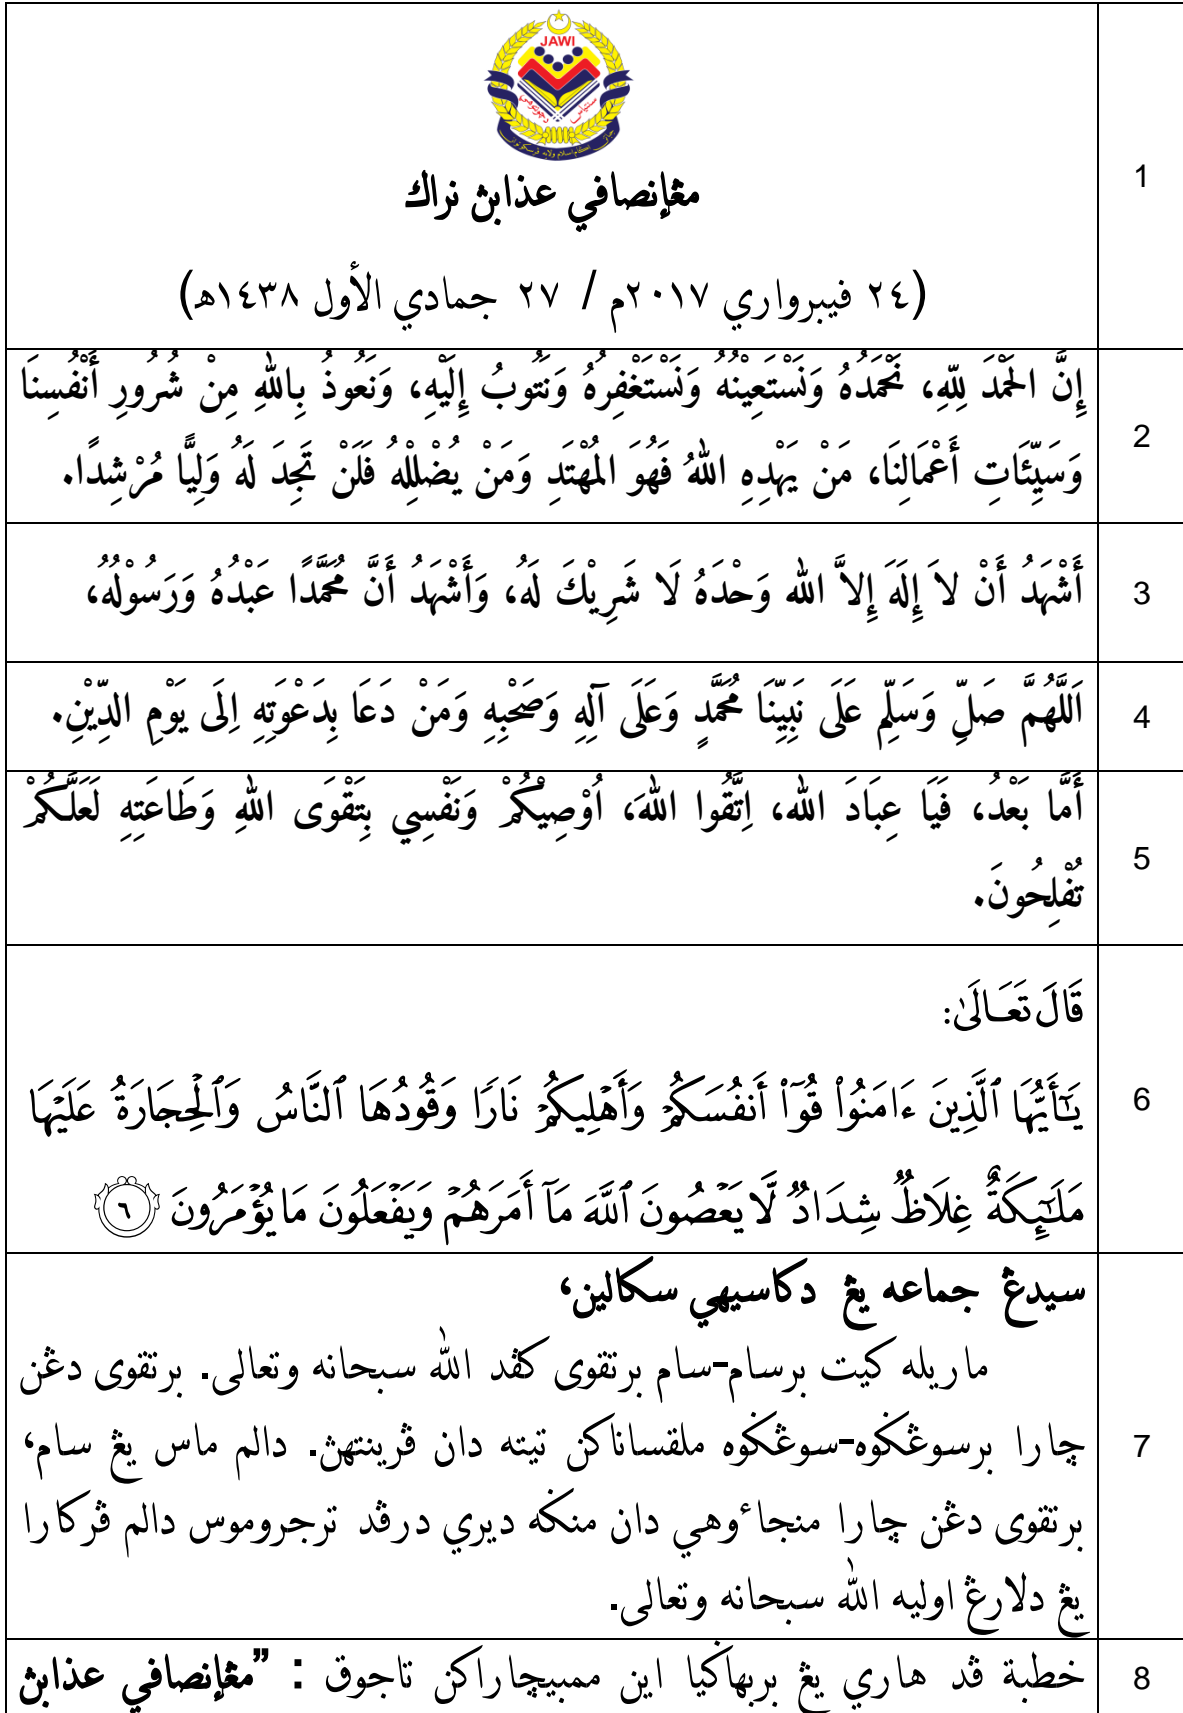 JAWI
مڠإنصافي عذابڽ نراك
1
(٢٤ فيبرواري ٢٠١٧م / ٢٧ جمادي الأول ١٤٣٨هـ)
إِنَّ الْحَمْدَ لِلّٰهِ، نَحْمَدُهُ وَنَسْتَعِيْنُهُ وَنَسْتَغْفِرُهُ وَنَتُوبُ إِلَيْهِ، وَنَعُوذُ بِاللهِ مِنْ شُرُورِ أَنْفُسِنَا
2
وَسَيِّئَاتِ أَعْمَالِنَا، مَنْ يَهْدِهِ اللهُ فَهُوَ الْمُهْتَدِ وَمَنْ يُضْلِلْهُ فَلَنْ تَجِدَ لَهُ وَلِيًّا مُرْشِدًا.
أَشْهَدُ أَنْ لاَ إِلَهَ إِلاَّ الله وَحْدَهُ لَا شَرِيْكَ لَهُ، وَأَشْهَدُ أَنَّ مُحَمَّدًا عَبْدُهُ وَرَسُوْلُهُ،
3
اَللَّهُمَّ صَلِّ وَسَلِّمْ عَلَى نَبِيِّنَا مُحَمَّدٍ وَعَلَى آلِهِ وَصَحْبِهِ وَمَنْ دَعَا بِدَعْوَتِهِ اِلَى يَوْمِ الدِّيْنِ.
4
أَمَّا بَعْدُ، فَيَا عِبَادَ الله، اِتَّقُوا اللهَ، اُوْصِيْكُمْ وَنَفْسِي بِتَقْوَى اللهِ وَطَاعَتِهِ لَعَلَّكُمْ
5
تُفْلِحُونَ.
قَالَ تَعَالَىٰ:
يَٰٓأَيُّهَا ٱلَّذِينَ ءَامَنُواْ قُوٓاْ أَنفُسَكُمۡ وَأَهۡلِيكُمۡ نَارٗا وَقُودُهَا ٱلنَّاسُ وَٱلۡحِجَارَةُ عَلَيۡهَا
6
مَلَٰٓئِكَةٌ غِلَاظٞ شِدَادٞ لَّا يَعۡصُونَ ٱللَّهَ مَآ أَمَرَهُمۡ وَيَفۡعَلُونَ مَا يُؤۡمَرُونَ ٦
سيدڠ جماعه يڠ دكاسيهي سكالين،
ماريله كيت برسام-سام برتقوى كڤد الله سبحانه وتعالى. برتقوى دڠن
چارا برسوڠݢوه-سوڠݢوه ملقساناكن تيته دان ڤرينتهڽ. دالم ماس يڠ سام،
7
برتقوى دڠن چارا منجاءوهي دان منݢه ديري درڤد ترجروموس دالم ڤركارا
يڠ دلارڠ اوليه الله سبحانه وتعالى.
خطبة ڤد هاري يڠ بربهاݢيا اين ممبيچاراكن تاجوق : ”مڠإنصافي عذابڽ
8